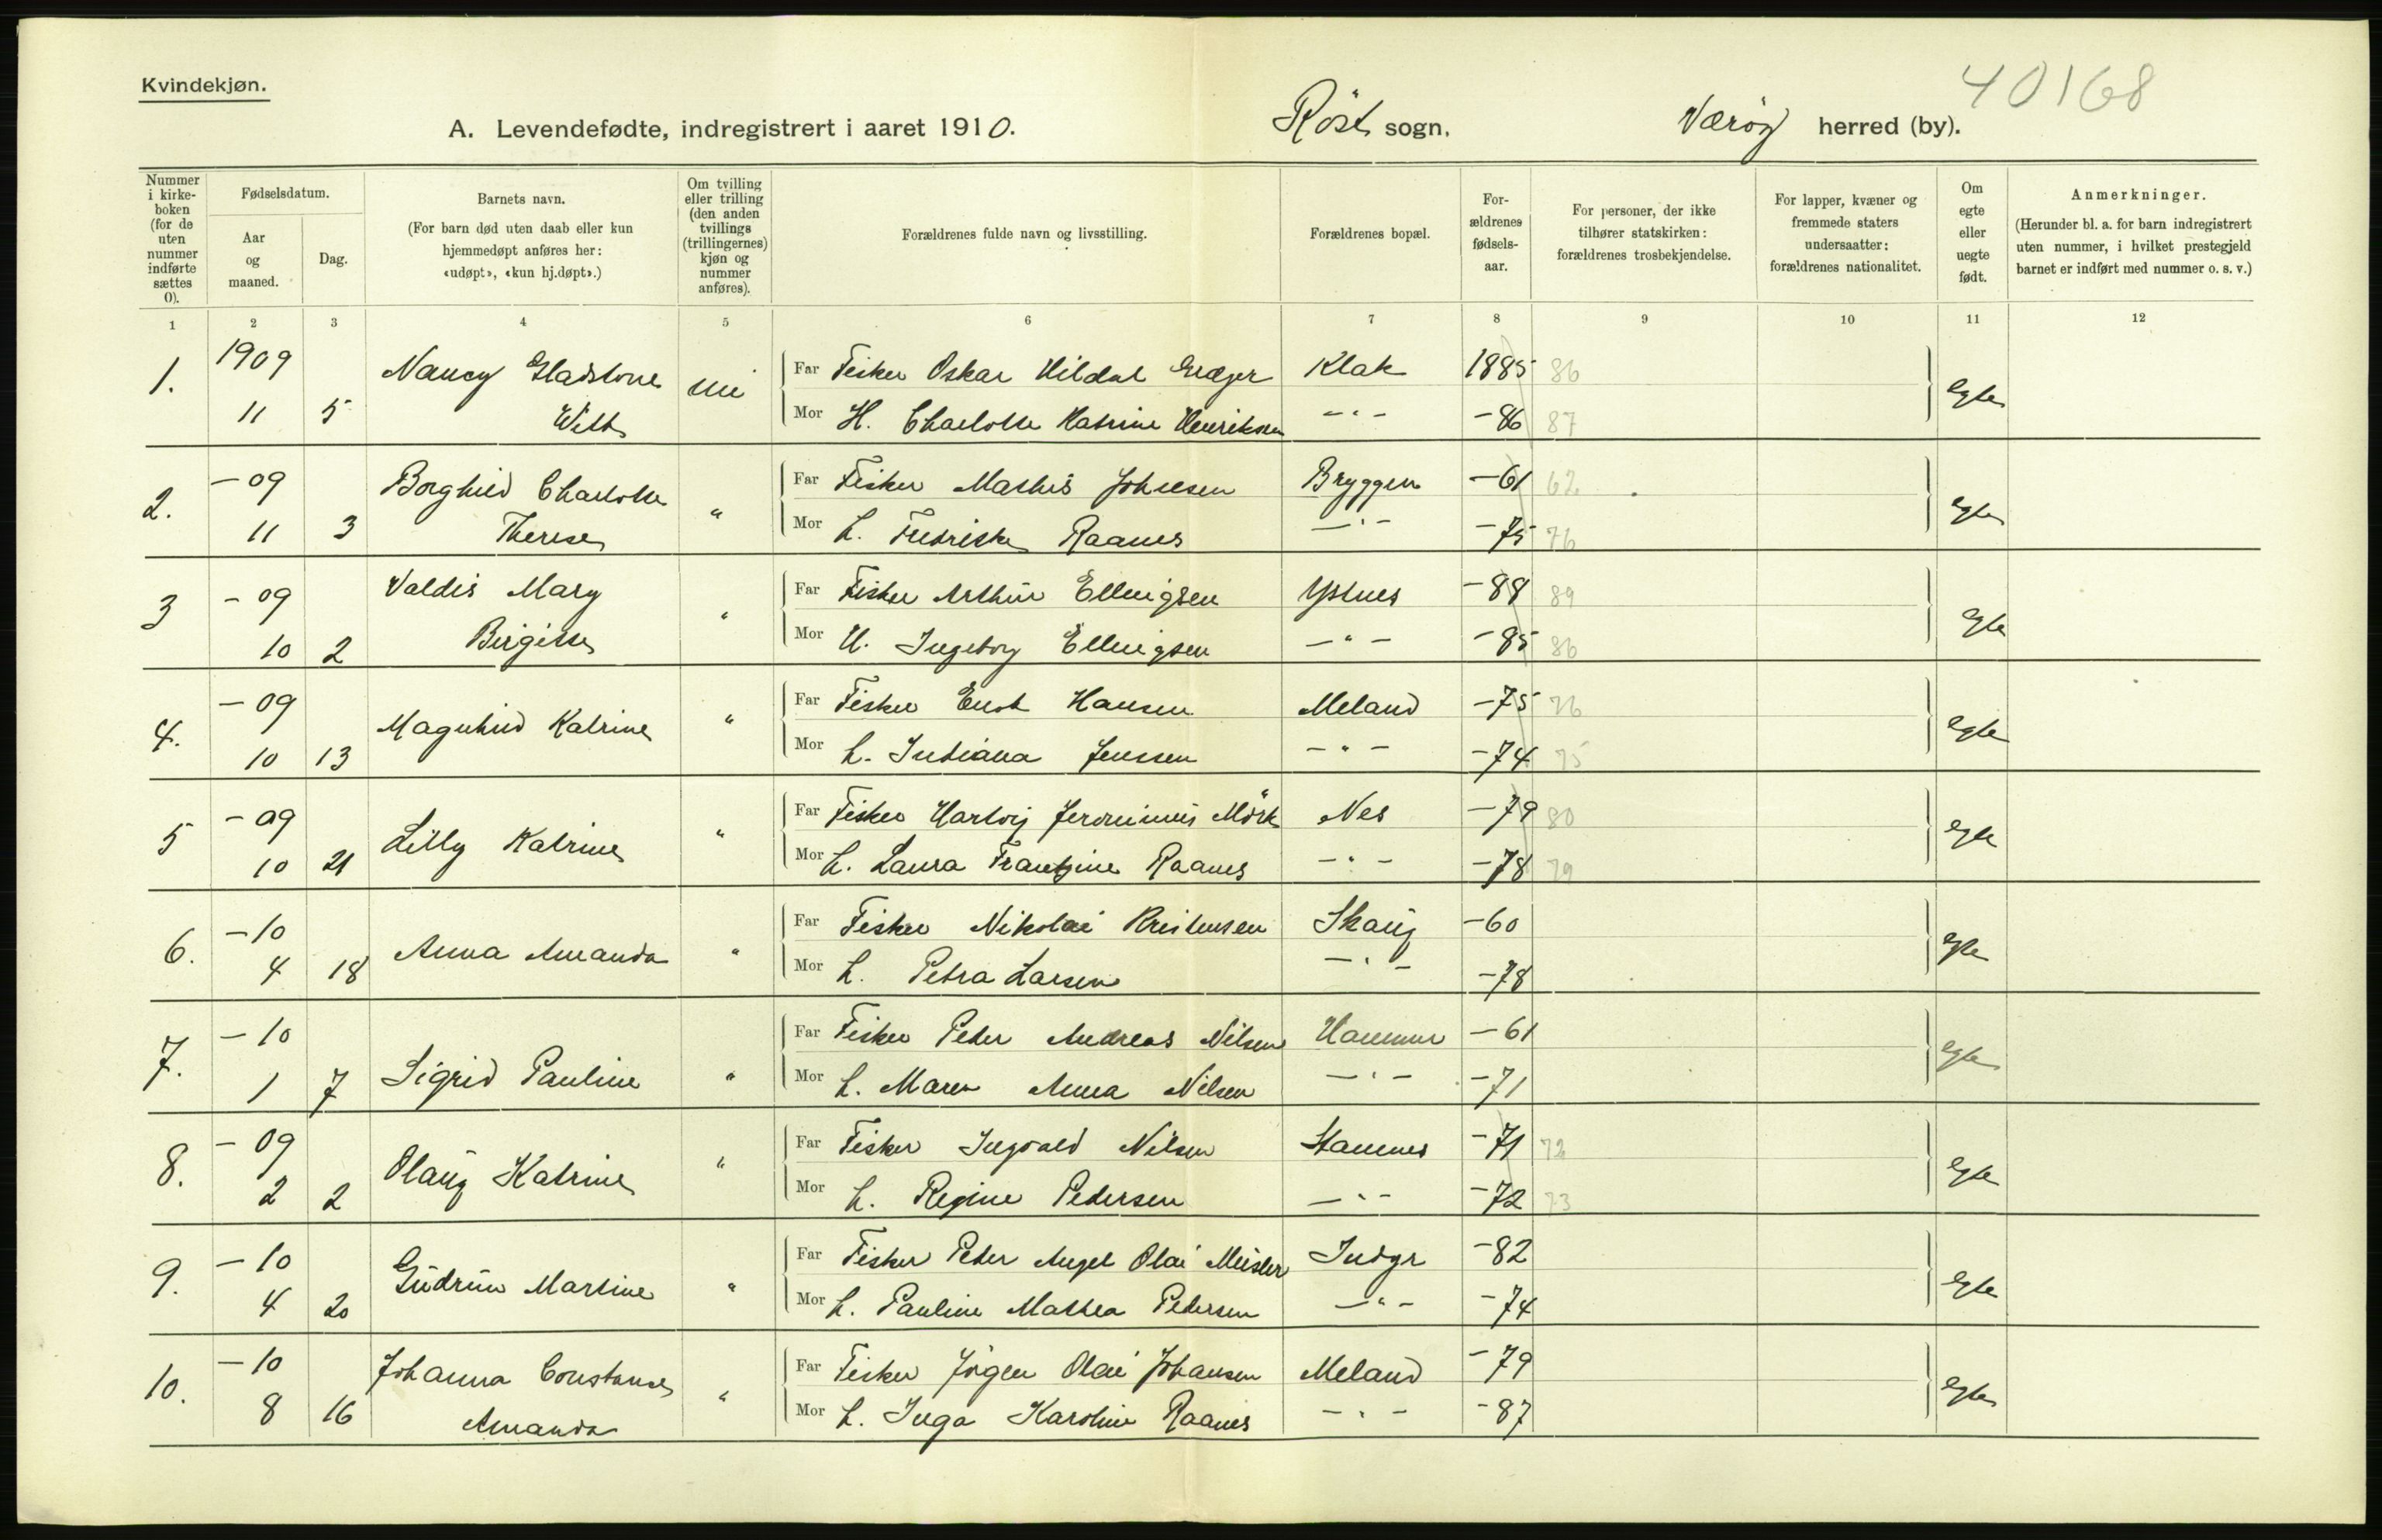 Kvindekjøn.
40168
A. Levendefødte, indregistrert i aaret 1910. Röst sogn. Værøy herred (by).
Nummer i kirkeboken (for de uten nummer indførte sættes 0).
Fødselsdatum.
Aar og maaned.
Dag.
Barnets navn.
(For barn død uten daab eller kun hjemmedøpt anføres her: «udøpt», «kun hj.døpt».)
Om tvilling eller trilling (den anden tvillings (trillingernes) kjøn og nummer anføres).
Forældrenes fulde navn og livsstilling.
Forældrenes bopæl.
Forældrenes fødselsaar.
For personer, der ikke tilhører statskirken: forældrenes trosbekjendelse.
For lapper, kvæner og fremmede staters undersaatter: forældrenes nationalitet.
Om egte eller uegte født.
Anmerkninger.
(Herunder bl. a. for barn indregistrert uten nummer, i hvilket prestegjeld barnet er indført med nummer o. s. v.)
1 2 3 4 5 6 7 8 9 10 11 12
1. 1909 Nancy Gladstone Far Fisker Oskar Hildal Klak 1885 86 Egte
11 5 Witt Mor H. Charlotte Katrine Henriksen -"- -86 87
2. -09 Borghild Charlotte " Far Fisker Mathis Johnsen Bryggen -61 62 Egte
11 3 Therese Mor h. Fredrikke Raanes -"- -75 76
3 -09 Valdis Mary " Far Fisker Arthur Ellingsen Ystnes -88 89 Egte
10 2 Birgitte Mor H. Ingeborg Ellingsen -"- -85 86
4. -09 Magnhild Katrine " Far Fisker Enok Hansen Meland -75 76 Egte
10 13 Mor h. Indiana Jenssen -"- -74 75
5 -09 Lilly Katrine " Far Fisker Hartvig Jeronimus Mörk Nes -79 80 Egte
10 21 Mor h. Laura Frantzine Raanes -"- -78 79
6. -10 Anna Amanda " Far Fisker Nikolai Kristensen -60 Egte
4 18 Mor h. Petra Larsen -"- -78
7. -10 Sigrid Pauline " Far Fisker Peder Andreas Nilsen -61 Egte
1 7 Mor h. Maren Anna Nilsen -"- -71
8. -09 Olaug Katrine " Far Fisker Ingvald Nilsen Stamnes -71 72 Egte
2 2 Mor h. Regine Pedersen -"- -72 73
9. -10 Gudrun Martine " Far Fisker Peder Angel Olai -82 Egte
4 20 Mor h. Pauline Mathea Pedersen -"- -74
10. -10 Johanna Constanse " Far Fisker Jörgen Olai Johansen Meland -79 Egte
8 16 Amanda Mor h. Inga Karoline Raanes -"- -87